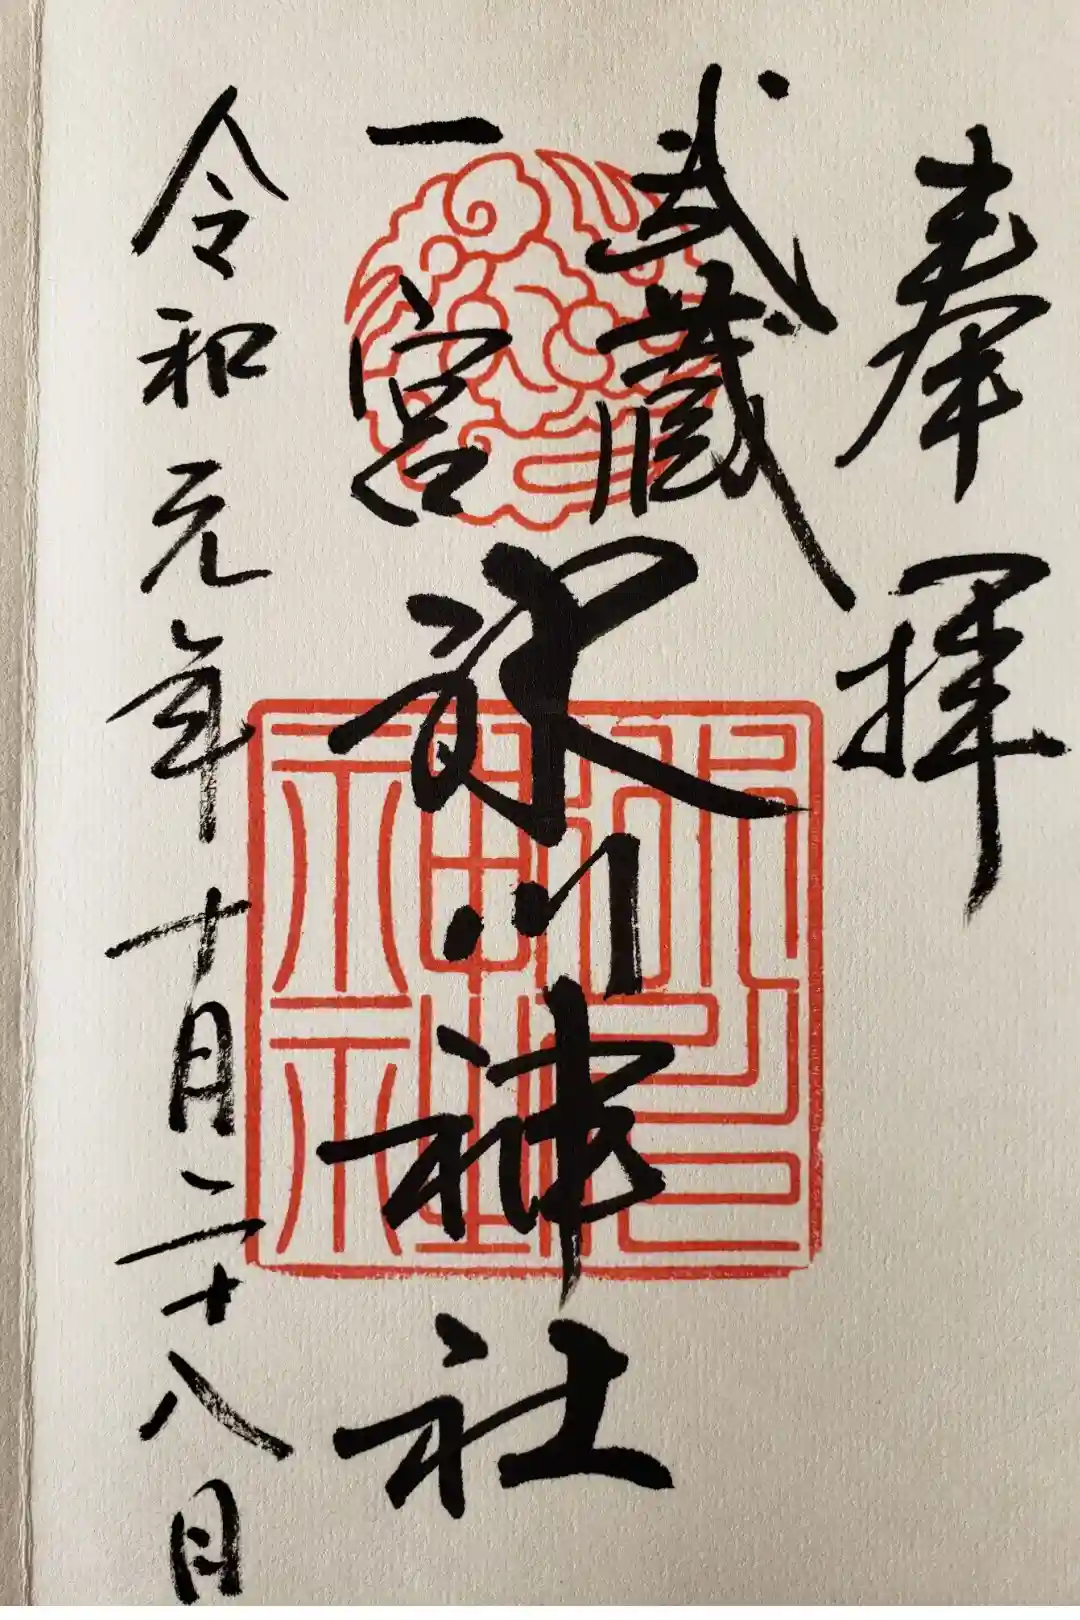 奉拝
武蔵
一宮
氷川神社
令和元年十月二十八日
氷川神社